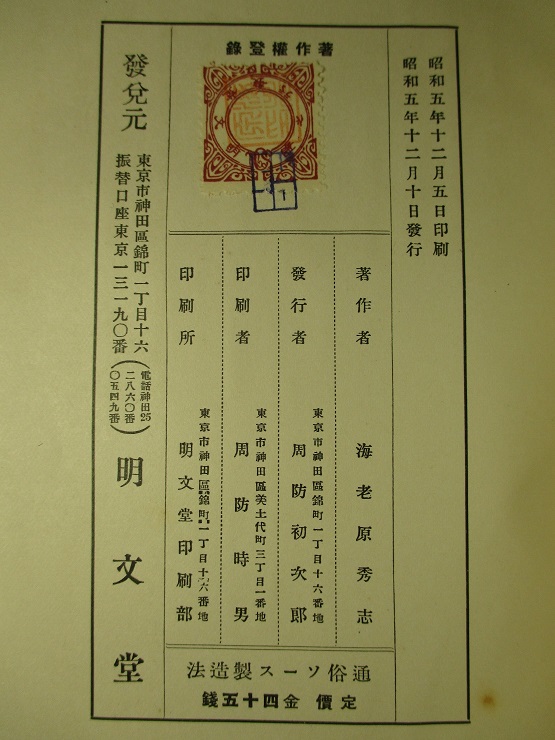 昭和五年十二月五日印刷
昭和五年十二月十日發行
著作權登錄
著作者 海老原秀志
發行者 東京市神田區錦町一丁目十六番地
周防初次郎
印刷者 東京市神田區美土代町三丁目一番地
周防時男
印刷所 東京市神田區錦町一丁目十六番地
明文堂印刷部
通俗ソース製造法
定價 金四十五錢
發兌元 東京市神田區錦町一丁目十六
振替口座東京一三一九〇番
(電話神田25
二八六〇番
〇五四九番)
明文堂